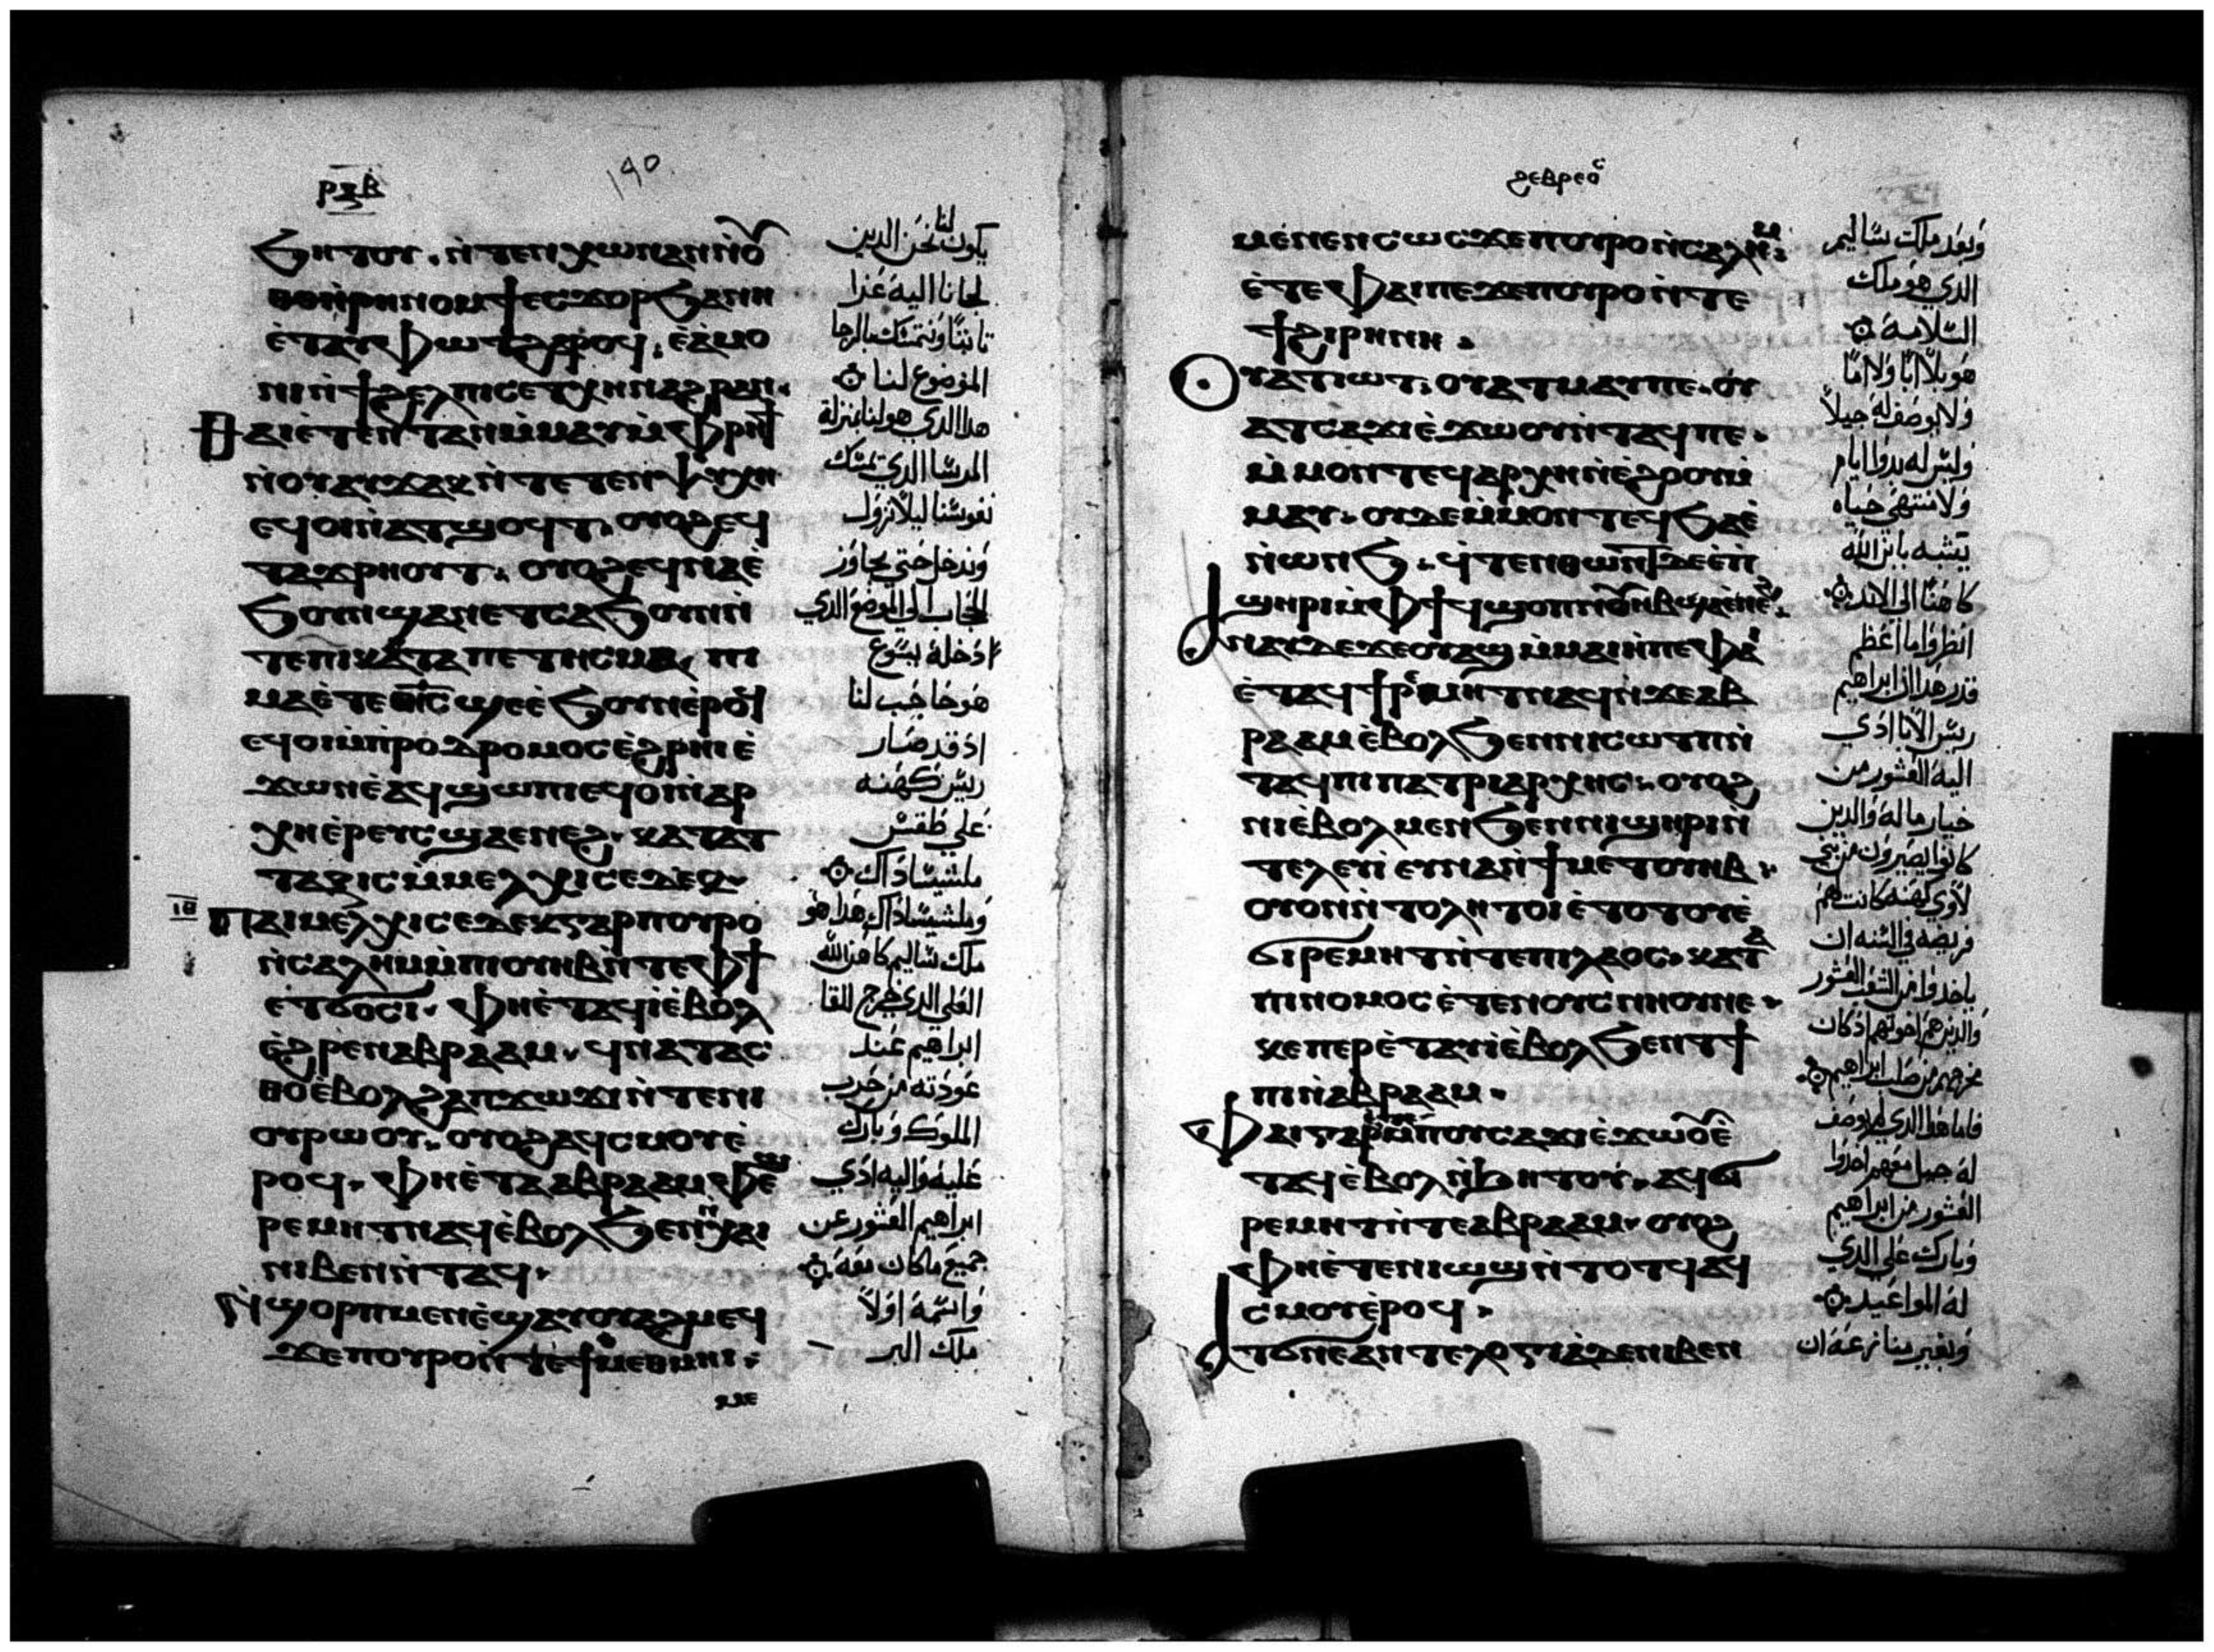 ⲣⲝⲃ
190
ϧⲏⲧⲟⲩ . ⲛ̀ⲧⲉⲛⲭⲱⲛⲁⲛⲛ̀ⲟⲩ
ⲑⲟⲛ̀ⲣⲏⲛⲟⲙϯⲉⲥϫⲟⲣϧⲁⲛⲏ
ⲉ̀ⲧⲁⲩⲫⲱⲧϩⲁⲣⲟϥ . ⲉ̀ⲁ̀ⲙⲟ
ⲛⲓⲛ̀ϯϩⲉⲗⲡⲓⲥⲉⲧⲭⲏⲛⲁϩⲣⲁⲛ .
ⲑⲁⲓⲉ̀ⲧⲉⲛ̀ⲧⲁⲛⲙ̀ⲙⲁⲩⲙ̀ⲫⲣⲏϯ
ⲛ̀ⲟⲩⲁⲩϫⲁⲗⲛ̀ⲧⲉⲧⲉⲛⲯⲩⲭⲏ
ⲉϥⲟⲓⲛ̀ⲁⲧϣⲟϥⲧ . ⲟⲩⲟϩⲉϥ
ⲧⲁϫⲣⲏⲟⲩⲧ . ⲟⲩⲟϩⲉϥⲛⲁⲉ̀
ϧⲟⲩⲛϣⲁⲡⲉⲧⲥⲁϧⲟⲩⲛⲛ̀
ⲧⲉⲡⲓⲕⲁⲧⲁⲡⲉⲧⲏⲥⲙⲁ . ⲡⲓ
ⲙⲁⲉ̀ⲧⲉⲓⲏⲥϣⲉⲉ̀ϧⲟⲩⲛⲉ̀ⲣⲟϥ
ⲉϥⲟⲓⲙ̀ⲡⲣⲟⲇⲣⲟⲙⲟⲥⲉ̀ϩⲣⲏⲓⲉ̀
ϫⲱⲛⲉ̀ⲁϥϣⲱⲡⲓⲉϥⲟⲓⲛ̀ⲁⲣ
ⲭⲏⲉ̀ⲣⲉⲩⲥϣⲁⲉⲛⲉϩ . ⲕⲁⲧⲁⲧ
ⲧⲁⲝⲓⲥⲙ̀ⲙⲉⲗⲭⲓⲥⲉⲇⲉⲕ .
ⲓⲑ
ⲡⲁⲓⲙⲉⲗⲭⲓⲥⲉⲇⲉⲕⲅⲁⲣⲡⲟⲩⲣⲟ
ⲛ̀ⲥⲁⲗⲏⲙⲙ̀ⲡⲓⲟⲩⲏⲃⲛ̀ⲧⲉⲫϯ
ⲉⲧϭⲟⲥⲓ . ⲫⲏⲉ̀ⲧⲁϥⲓ̀ⲉ̀ⲃⲟⲗ
ⲉ̀ϩⲣⲉⲛⲁⲃⲣⲁⲁⲙ . ϥⲛⲁⲧⲁⲥ
ⲑⲟⲉ̀ⲃⲟⲗϩⲁⲡϫⲱϫⲓⲛ̀ⲧⲉⲛⲓ
ⲟⲩⲣⲱⲟⲩ . ⲟⲩⲟϩⲁϥⲥⲙⲟⲩⲉ̀
ⲣⲟϥ . ⲫⲏⲉ̀ⲧⲁⲁⲃⲣⲁⲁⲙⲫⲉ
ⲣⲉⲙⲏⲧⲛⲁϥⲉ̀ⲃⲟⲗϧⲉⲛⲭⲁⲓ
ⲛⲓⲃⲉⲛⲛ̀ⲧⲁϥ .
ⲛ̀ϣⲟⲣⲡⲙⲉⲛⲉ̀ϣⲁⲩⲟⲩⲁϩⲙⲉϥ
ϫⲉⲡⲟⲩⲣⲟⲛ̀ⲧⲉϯⲙⲉⲑⲙⲏⲓ .
ⲙⲉ
يكون لنا نحن الدين
لجانا اليه غدا
ثابتا ونتمسك بالرجا
الموضوع لنا
هدا الدي هو لنا بمنزلة
المرسا الدي تمسك
نفوسنا ليلا نزول
وندخل حتي يجاوز
الحجاب الي الموضع الدي
ادخله يسوع
هو حاجب لنا
اد قد صار
رييس كهنه
علي طقس
ملشيساداك
وملشيساداك هدا هو
ملك ساليم كاهن الله
العلي الدي خرج للقا
ابراهيم عند
عودته من حرب
الملوك وبارك
عليه واليه ادي
ابراهيم العشور عن
جميع ما كان معه
واسمه اولا
ملك البر
ϩⲉⲃⲣⲉⲟⲥ
ⲙⲉ̀ⲛⲉⲛⲥⲱⲥϫⲉⲡⲟⲩⲣⲟⲛ̀ⲥⲁⲗⲏⲙ
ⲉ̀ⲧⲉⲫⲁⲓⲡⲉϫⲉⲡⲟⲩⲣⲟⲛ̀ⲧⲉ
ϯϩⲓⲣⲏⲛⲏ .
ⲟⲩⲁⲧⲓⲱⲧ . ⲟⲩⲁⲧⲙⲁⲩⲡⲉ . ⲟⲩ
ⲁⲧⲥⲁϫⲓⲉ̀ϫⲱⲟⲩⲛ̀ⲧⲁϥⲡⲉ .
ⲙ̀ⲙⲟⲛⲧⲉϥⲁⲣⲭⲏⲛ̀ⲉ̀ϩⲟⲟⲩⲙ̀
ⲙⲁⲩ . ⲟⲩⲇⲉⲙ̀ⲙⲟⲛⲧⲉϥϧⲁⲉ̀
ⲛ̀ⲱⲛϧ . ϥⲧⲉⲛⲑⲱⲛⲧⲇⲉⲉ̀ⲡ
ϣⲏⲣⲓⲙ̀ⲫϯϥϣⲟⲡⲛⲟⲩⲏⲃϣⲁⲉⲛⲉϩ
ⲁⲛⲁⲩⲇⲉϫⲉⲟⲩⲁϣⲙ̀ⲙⲁⲓⲏⲡⲉⲫⲁⲓ
ⲉ̀ⲧⲁϥϯⲣⲉⲙⲏⲧⲛⲁϥⲛ̀ϫⲉⲁⲃ
ⲣⲁⲁⲙⲉ̀ⲃⲟⲗϧⲉⲛⲛⲓⲥⲱⲧⲡⲛ̀
ⲧⲁϥⲡⲓⲡⲁⲧⲣⲓⲁⲣⲭⲏⲥ . ⲟⲩⲟϩ
ⲛⲓⲉ̀ⲃⲟⲗⲙⲉⲛϧⲉⲛⲛⲓϣⲏⲣⲓⲛ̀
ⲧⲉⲗⲉⲩⲓ̀ ⲉⲩⲛⲁϭⲓ̀ϯⲙⲉⲧⲟⲩⲏⲃ .
ⲟⲩⲟⲛⲛ̀ⲧⲟⲗⲏⲧⲟⲓⲉ̀ⲧⲟⲧⲟⲩⲉ̀
ϭⲓⲣⲉⲙⲏⲧⲛ̀ⲧⲉⲡⲓⲗⲁⲟⲥ . ⲕⲁⲧⲁ
ⲡⲓⲛⲟⲙⲟⲥⲉ̀ⲧⲉⲛⲟⲩⲥⲛⲏⲟⲩⲛⲉ .
ⲕⲉⲡⲉⲣⲉ̀ⲧⲁⲩⲓ̀ⲉ̀ⲃⲟⲗϧⲉⲛⲧϯ
ⲡⲓⲛ̀ⲁⲃⲣⲁⲁⲙ .
ⲫⲁⲓⲅⲁⲣⲙ̀ⲡⲟⲩⲥⲁϫⲓⲉ̀ϫⲱⲟⲩⲉ̀
ⲧⲁϥⲉ̀ⲃⲟⲗⲛ̀ϧⲏⲧⲟⲩ . ⲁϥϭ
ⲣⲉⲙⲏⲧⲛ̀ⲧⲉⲁⲃⲣⲁⲁⲙ . ⲟⲩⲟϩ
ⲫⲏⲉ̀ⲧⲉⲛⲓⲱϣⲛ̀ⲧⲟⲧϥⲁϥ
ⲥⲙⲟⲩⲉ̀ⲣⲟϥ .
ⲁⲧϭⲛⲉⲁⲛⲧⲉⲗⲟⲅⲓⲁⲇⲉⲛⲓⲃⲉⲛ
وبعد ملك ساليم
الدي هو ملك
السلامه
هو بلا ابا ولا اما
ولا يوصف له جيلا
وليس له بدوا ايام
ولا منتهي حياه
يتشبه بابن الله
كاهنا الي الابد
انظروا ما اعظم
قدر هدا ان ابراهيم
رييس الابا ادي
اليه العشور من
خيار ماله والدين
كانوا يصيرون من بني
لاوي كهنه كانت لهم
فريضه في السنه ان
ياخدوا من الشعب العشور
والدين هم اخوتهم اد كان
مخرجهم من صلب ابراهيم
فاما هدا الدي لم يوصف
له جيل معهم اخدوا
العشور من ابراهيم
وبارك علي الدي
له المواعيد
وبغير منازعه ان